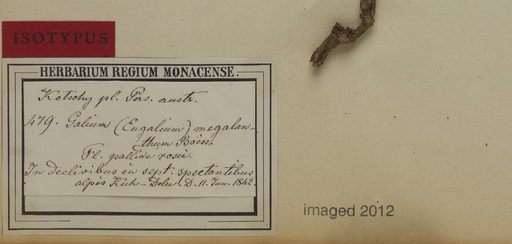 ISOTYPUS
HERBARIUM REGIUM MONACENSE.
Kotschy pl. Pers. austr.
479. Galium (Eugalium) megalan-
thum Boiss.
Fl. pallide rosei.
In declivibus in sept. spectantibus
alpis Kuh-Delu. D. 11. Jun. 1842.
imaged 2012